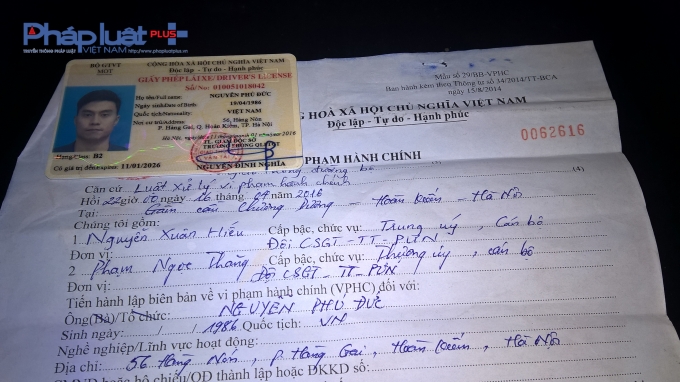 Pháp luật PLUS+
TRUYỀN THÔNG PHÁP LUẬT VIỆT NAM www.phapluatplus.vn
BỘ GTVT
MOT
CỘNG HÒA XÃ HỘI CHỦ NGHĨA VIỆT NAM
Độc lập - Tự do - Hạnh phúc
GIẤY PHÉP LÁI XE/DRIVER'S LICENSE
Số/No: 010051018042
Họ tên/Full name: NGUYỄN PHÚ ĐỨC
Ngày sinh/Date of Birth: 19/04/1986
Quốc tịch/Nationality: VIỆT NAM
Nơi cư trú/Address: 56, Hàng Nón,
P. Hàng Gai, Q. Hoàn Kiếm, TP. Hà Nội
TRƯỞNG PHÒNG QLPT
NGUYỄN ĐÌNH NGHĨA
Hạng/Class: B2
Có giá trị đến/Expires: 11/01/2026
Mẫu số 29/BB-VPHC
Ban hành kèm theo Thông tư số 34/2014/TT-BCA
ngày 15/8/2014
HOÀ XÃ HỘI CHỦ NGHĨA VIỆT NAM
Độc lập - Tự do - Hạnh phúc
0062616
PHẠM HÀNH CHÍNH
đường bộ
(4)
Căn cứ Luật Xử lý vi phạm hành chính
Hồi 22 giờ 00 ngày 16 tháng 07 năm 2016
Tại: Gầm cầu Chương Dương - Hoàn Kiếm - Hà Nội
Chúng tôi gồm:
1. Nguyễn Xuân Hiếu Cấp bậc, chức vụ: Trung úy, Cán bộ
Đơn vị: Đội CSGT-TT-PƯN
2 Phạm Ngọc Thắng Cấp bậc, chức vụ: Thượng úy, cán bộ
Đơn vị: Đội CSGT-TT-PƯN
Tiến hành lập biên bản về vi phạm hành chính (VPHC) đối với:
Ông(Bà)/Tổ chức: NGUYỄN PHÚ ĐỨC
Sinh ngày / / 1986 Quốc tịch: VN
Nghề nghiệp/Lĩnh vực hoạt động:
Địa chỉ: 56 Hàng Nón, P. Hàng Gai, Hoàn Kiếm, Hà Nội
CMND hoặc hộ chiếu/QĐ thành lập hoặc ĐKKD số: